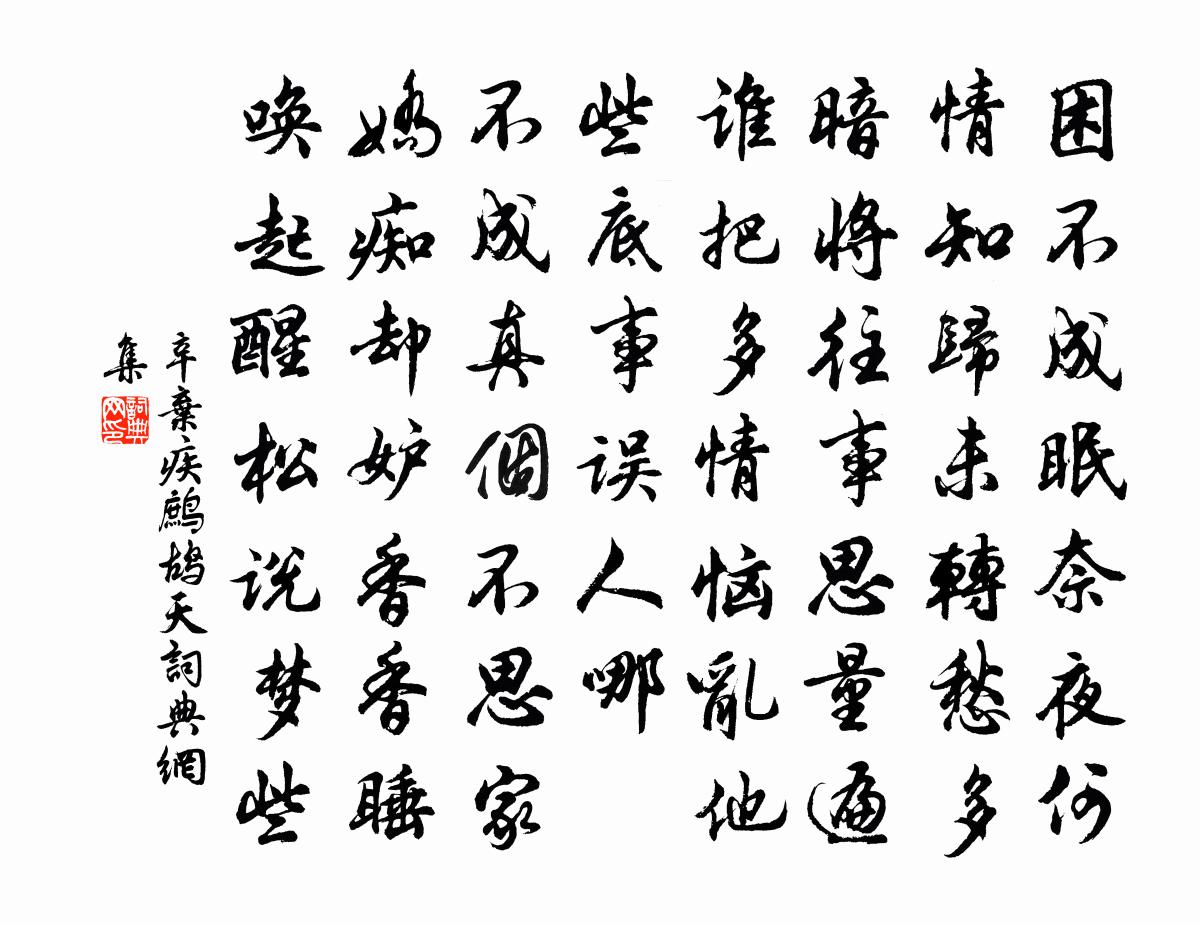 困不成眠奈夜何
情知歸未轉愁多
暗將往事思量遍
谁把多情恼亂他
些底事误人哪
不成真個不思家
嬌痴却妒香香睡
唤起醒松说梦些
辛棄疾鷓鴣天詞典網
集
詞典
网印